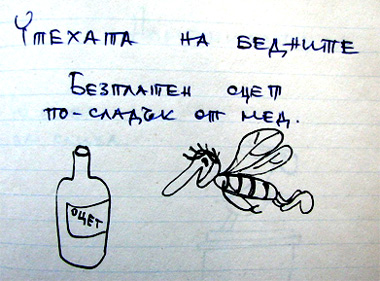 Утехата на бедните
Безплатен оцет
по-сладък от мед.
оцет